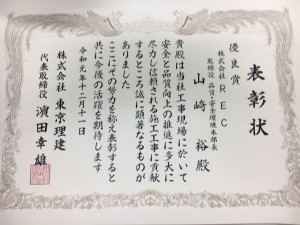 表彰状
優良賞
株式会社 REC
取締役 品質・安全環境本部長
山崎 裕殿
貴殿は当社工事現場に於いて
安全と品質向上の推進に多大に
尽力し信頼される施工工事に貢献
するところ誠に顕著なるものが
ありました
ここにその努力を称え表彰すると
共に今後の活躍を期待します
令和元年十二月十一日
株式会社 東京理建
代表取締役 濵田幸雄